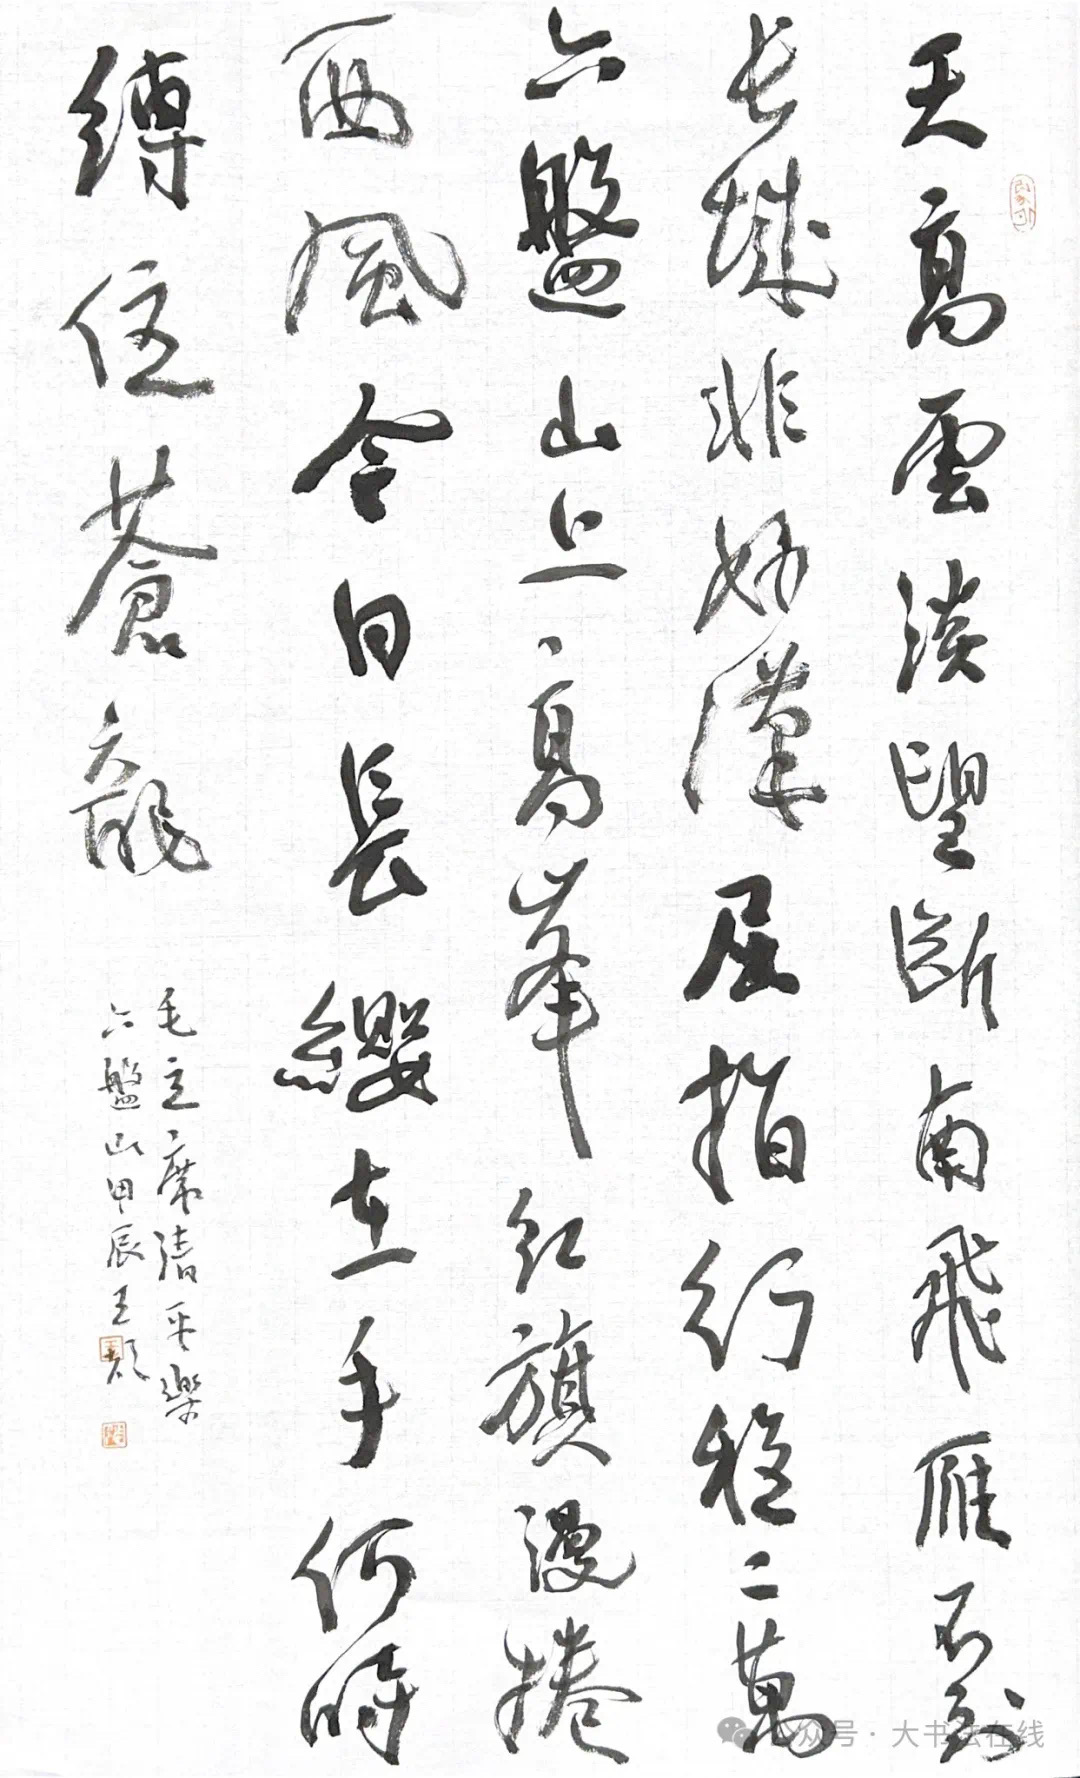 天高雲淡望斷南飛雁不到
長城非好漢屈指行程二萬
六盤山上高峯紅旗漫捲
西風今日長纓在手何時
縛住蒼龍
毛主席清平樂
六盤山甲辰王
公众号·大书法在线